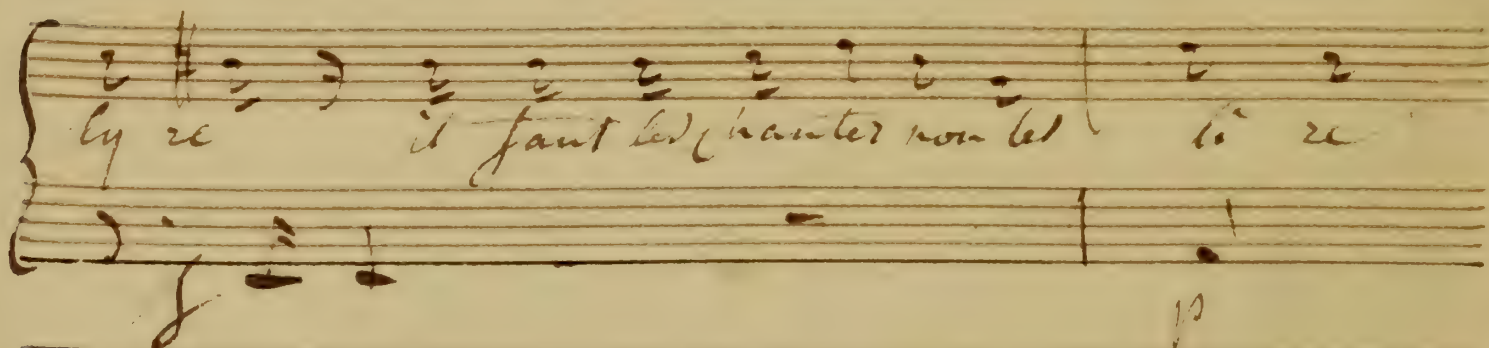 ly re il faut les chanter non les li re
f p